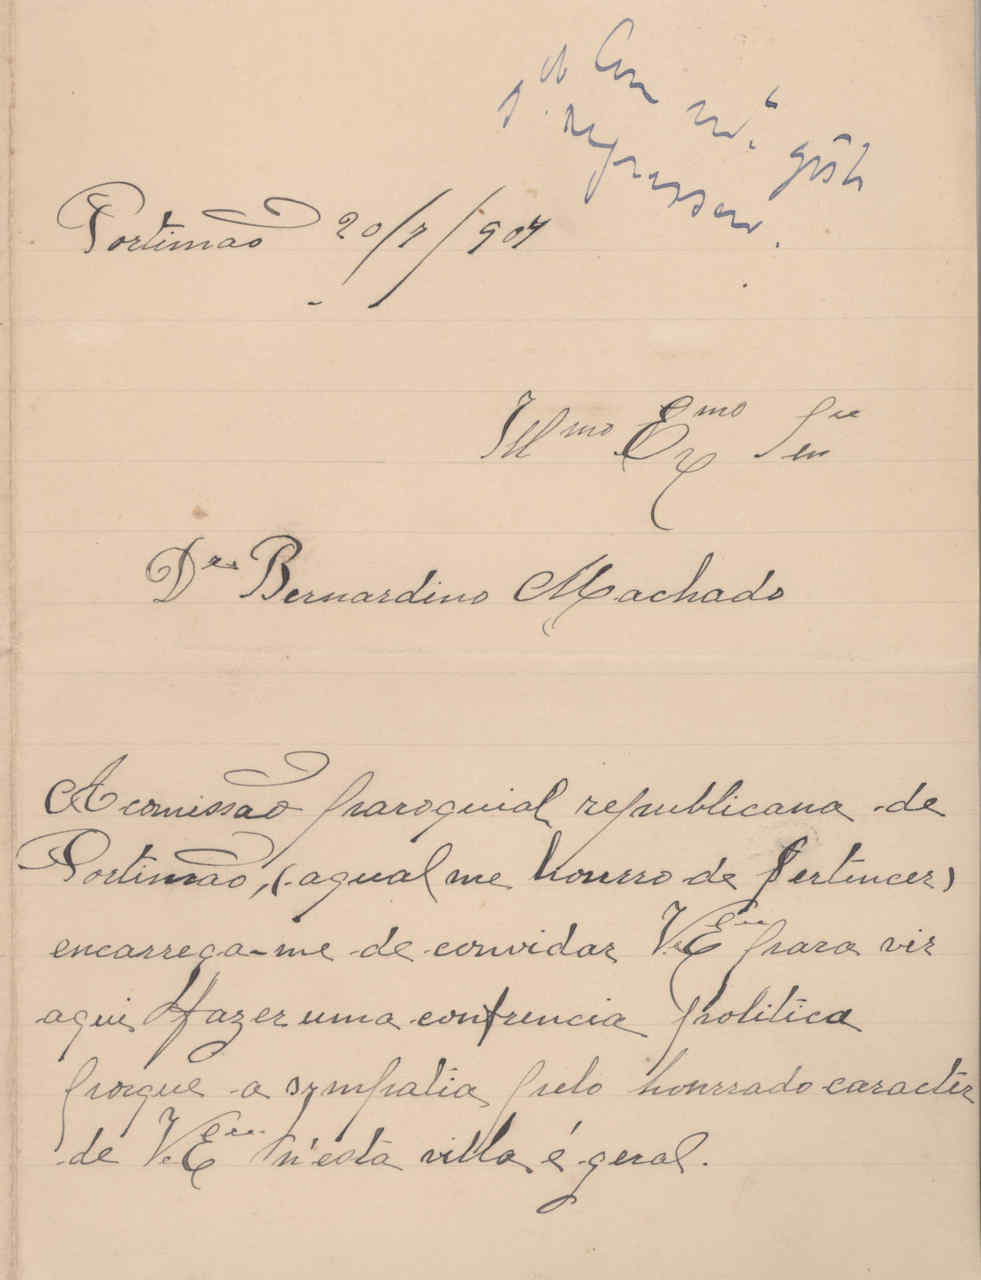 Com m.to gôsto
Portimão 20/7/907
Illmo Exmo Senr
Dr Bernardino Machado
A comissão paroquial republicana de
Portimão, (aqual me honrro de pertencer)
encarrega-me de convidar V. Exa para vir
aqui fazer uma confrencia politica
porque a sympatia pelo honrrado caracter
de V. Exa n'esta villa é geral.